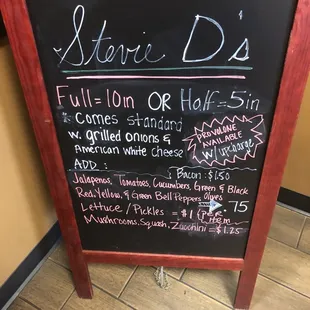 Stevie D's
Full = 10in OR Half = 5in
Comes standard
w. grilled onions &
American White Cheese
PROVOLONE
AVAILABLE
w/ upcharge
ADD:
Bacon = $1.50
Jalapenos, Tomatoes, Cucumbers, Green & Black
Red, Yellow, & Green Bell Peppers Olives
75
Lettuce / Pickles = $1 (PER ITEM
Mushrooms, Squash, Zucchini = $1.25